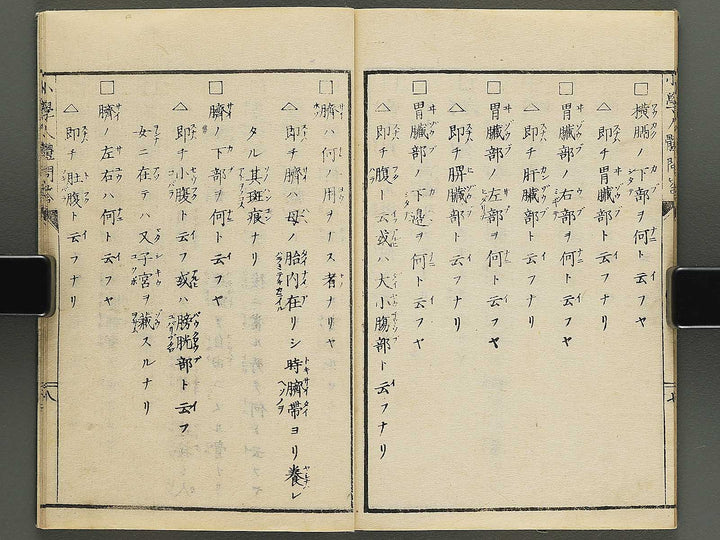 □横膈ノ下部ヲ何ト云フヤ
△即チ胃臓部ト云フナリ
□胃臓部ノ右部ヲ何ト云フヤ
△即チ肝臓部ト云フナリ
□胃臓部ノ左部ヲ何ト云フヤ
△即チ脾臓部ト云フナリ
□胃臓部ノ下邉ヲ何ト云フヤ
△即チ腹ト云或ハ大小膓部ト云フナリ
□臍ハ何ノ用ヲナス者ナリヤ
△即チ臍ハ母ノ胎内在リシ時臍帯ヨリ養レ
タル其斑痕ナリ
□臍ノ下部ヲ何ト云フヤ
△即チ小腹ト云フ或ハ膀胱部ト云フ
女ニ在テハ又子宮ヲ兼スルナリ
□臍ノ左右ハ何ト云フヤ
△即チ肚腹ト云フナリ
八